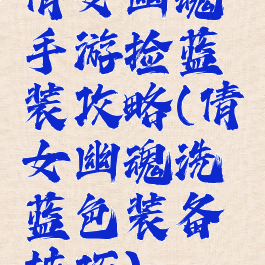 倩女幽魂
手游捡蓝
装攻略(倩
女幽魂洗
蓝色装备
技巧)